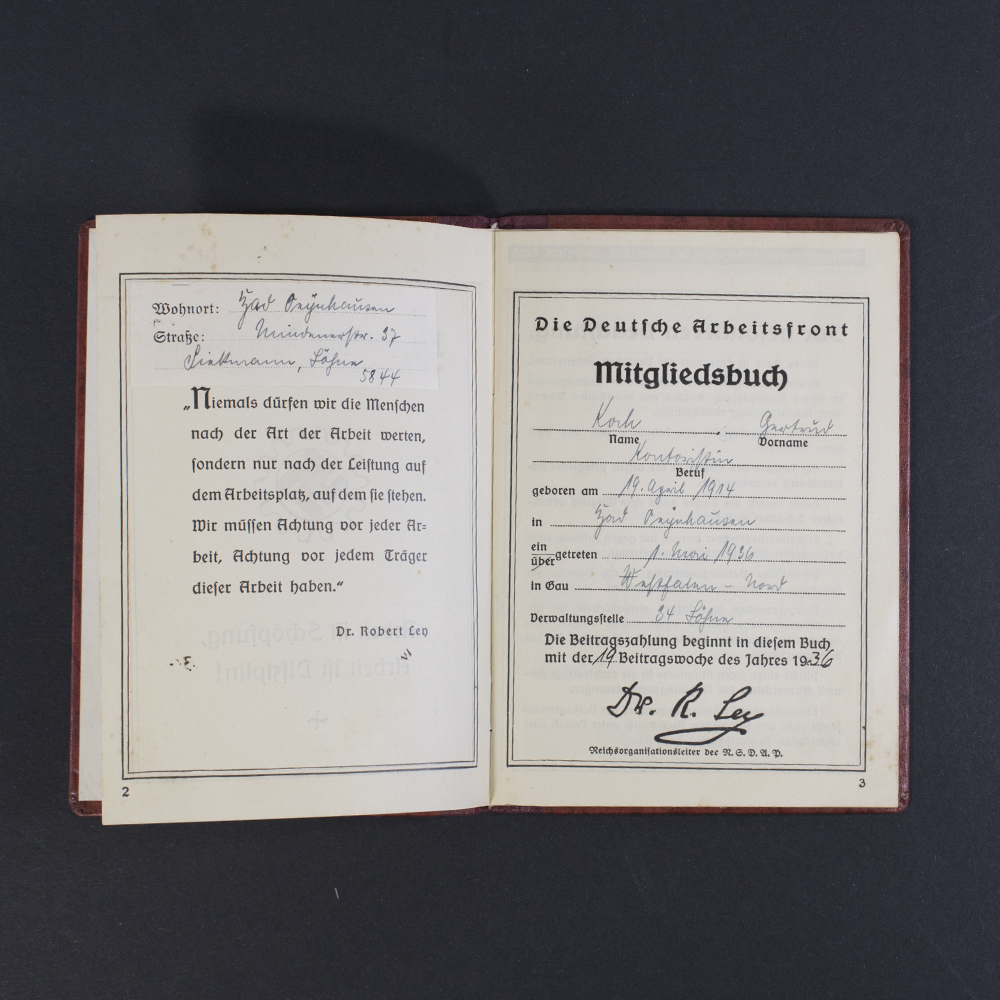 Wohnort: Bad Oeynhausen
Straße: Mindenerstr. 37
Diekmann, Löhne
5844
„Niemals dürfen wir die Menschen
nach der Art der Arbeit werten,
sondern nur nach der Leistung auf
dem Arbeitsplatz, auf dem sie stehen.
Wir müssen Achtung vor jeder Ar=
beit, Achtung vor jedem Träger
dieser Arbeit haben.“
Dr. Robert Ley
2
Die Deutsche Arbeitsfront
Mitgliedsbuch
Koch, Gertrud
Name Vorname
Kontoristin
Beruf
geboren am 19. April 1914
in Bad Oeynhausen
ein
übergetreten 1. Mai 1936
in Gau Westfalen - Nord
Verwaltungsstelle 34 Löhne
Die Beitragszahlung beginnt in diesem Buch
mit der 19 Beitragswoche des Jahres 1936
Dr. R. Ley
Reichsorganisationsleiter der N. S. D. A. P.
3